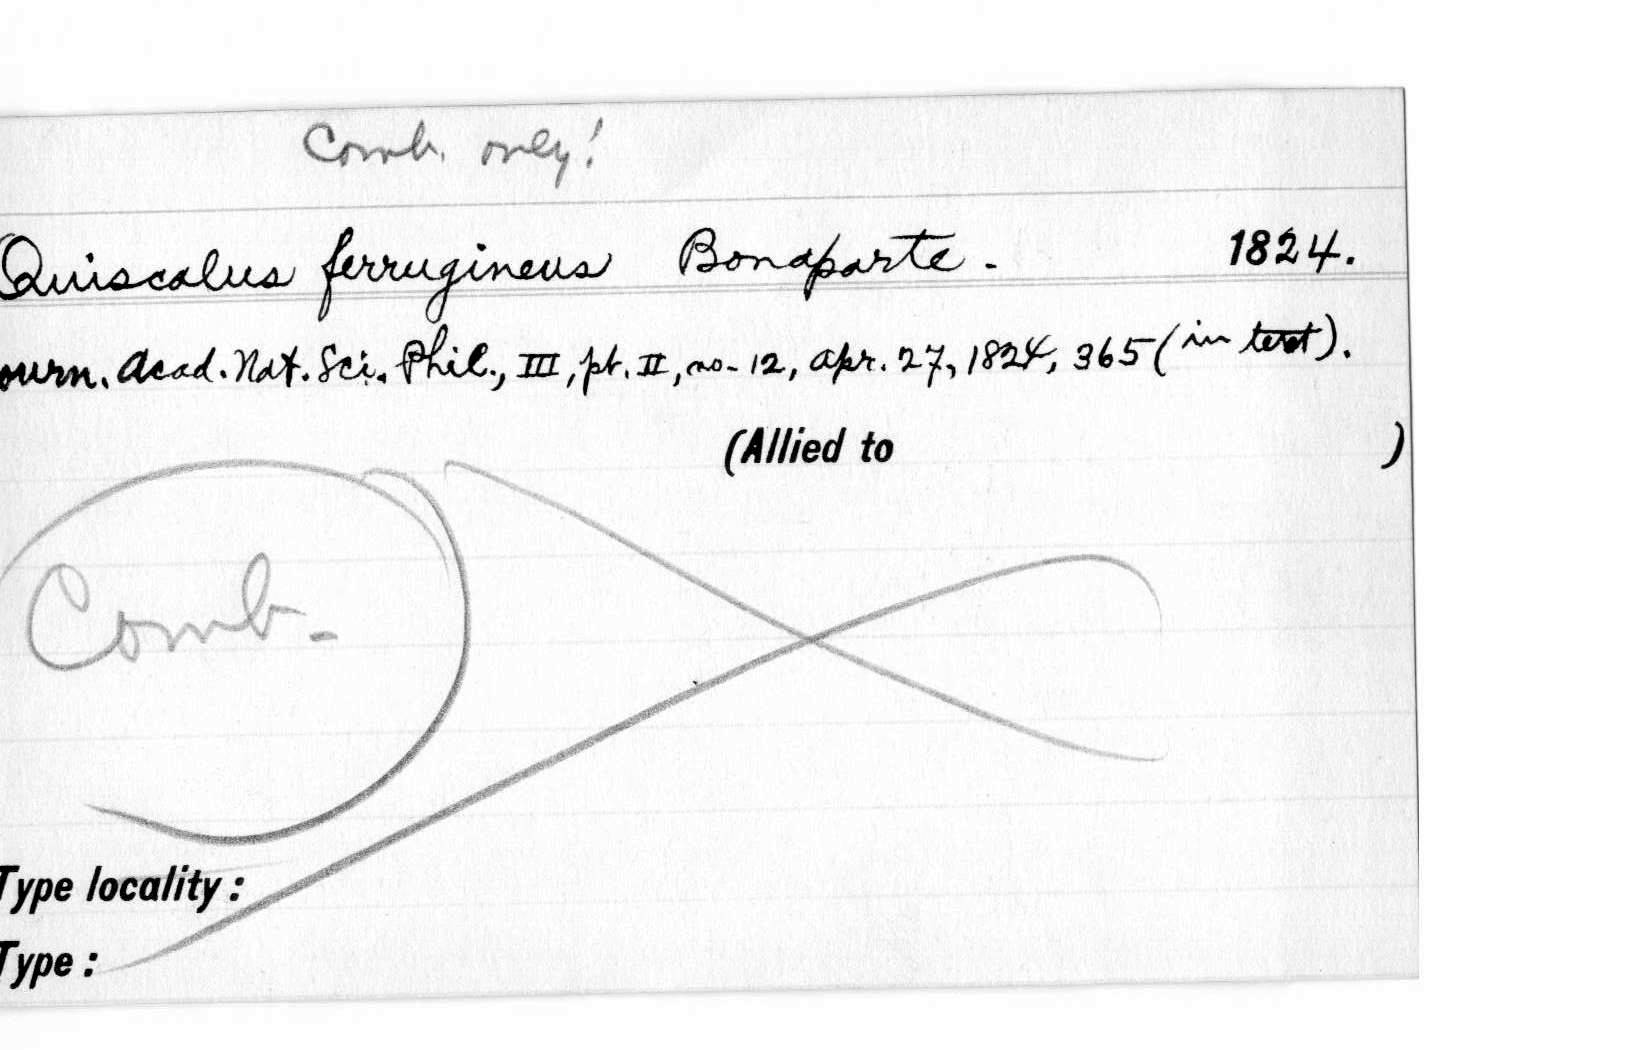 Comb. only!
Quiscalus ferrugineus Bonaparte. 1824.
ourn. Acad. Nat. Sci. Phil., III, pt. II, no. 12, Apr. 27, 1824, 365 (in text).
(Allied to )
Comb.
Type locality:
Type: